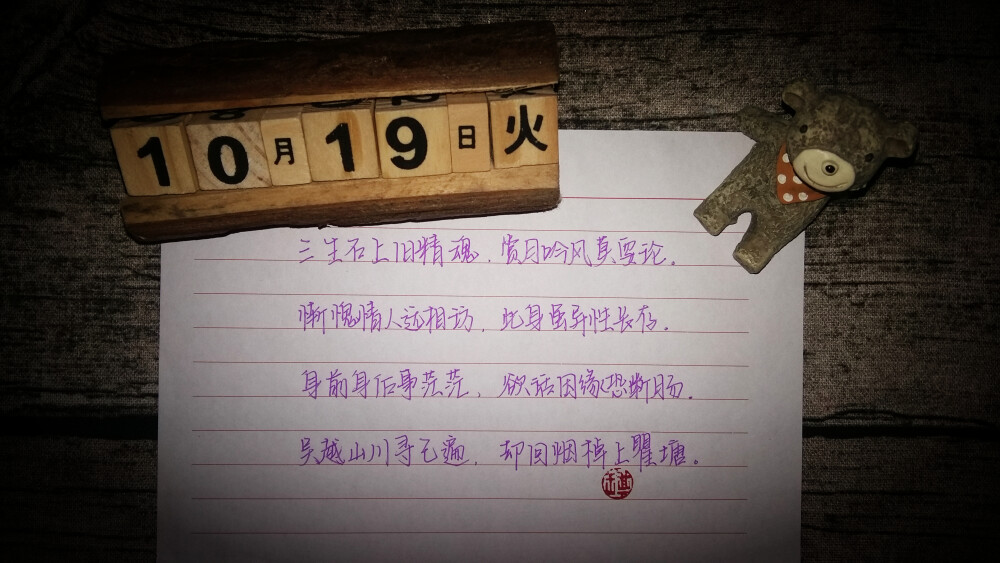 10月19日火
三生石上旧精魂，赏月吟风莫要论。
惭愧情人远相访，此身虽异性长存。
身前身后事茫茫，欲话因缘恐断肠。
吴越山川寻已遍，却回烟棹上瞿塘。